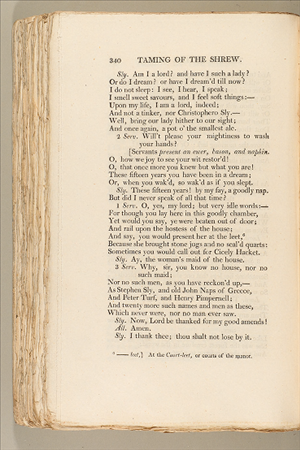 340 TAMING OF THE SHREW.
Sly. Am I a lord? and have I such a lady?
Or do I dream? or have I dream'd till now?
I do not sleep: I see, I hear, I speak;
I smell sweet savours, and I feel soft things:—
Upon my life, I am a lord, indeed;
And not a tinker, nor Christophero Sly.—
Well, bring our lady hither to our sight;
And once again, a pot o' the smallest ale.
2 Serv. Will't please your mightiness to wash
your hands?
[Servants present an ewer, bason, and napkin.
O, how we joy to see your wit restor'd!
O, that once more you knew but what you are!
These fifteen years you have been in a dream;
Or, when you wak'd, so wak'd as if you slept.
Sly. These fifteen years! by my fay, a goodly nap.
But did I never speak of all that time?
1 Serv. O, yes, my lord; but very idle words:—
For though you lay here in this goodly chamber,
Yet would you say, ye were beaten out of door;
And rail upon the hostess of the house;
And say, you would present her at the leet,⁸
Because she brought stone jugs and no seal'd quarts:
Sometimes you would call out for Cicely Hacket.
Sly. Ay, the woman's maid of the house.
3 Serv. Why, sir, you know no house, nor no
such maid;
Nor no such men, as you have reckon'd up,—
As Stephen Sly, and old John Naps of Greece,
And Peter Turf, and Henry Pimpernell;
And twenty more such names and men as these,
Which never were, nor no man ever saw.
Sly. Now, Lord be thanked for my good amends!
All. Amen.
Sly. I thank thee; thou shalt not lose by it.
⁸ —— leet,] At the Court-leet, or courts of the manor.